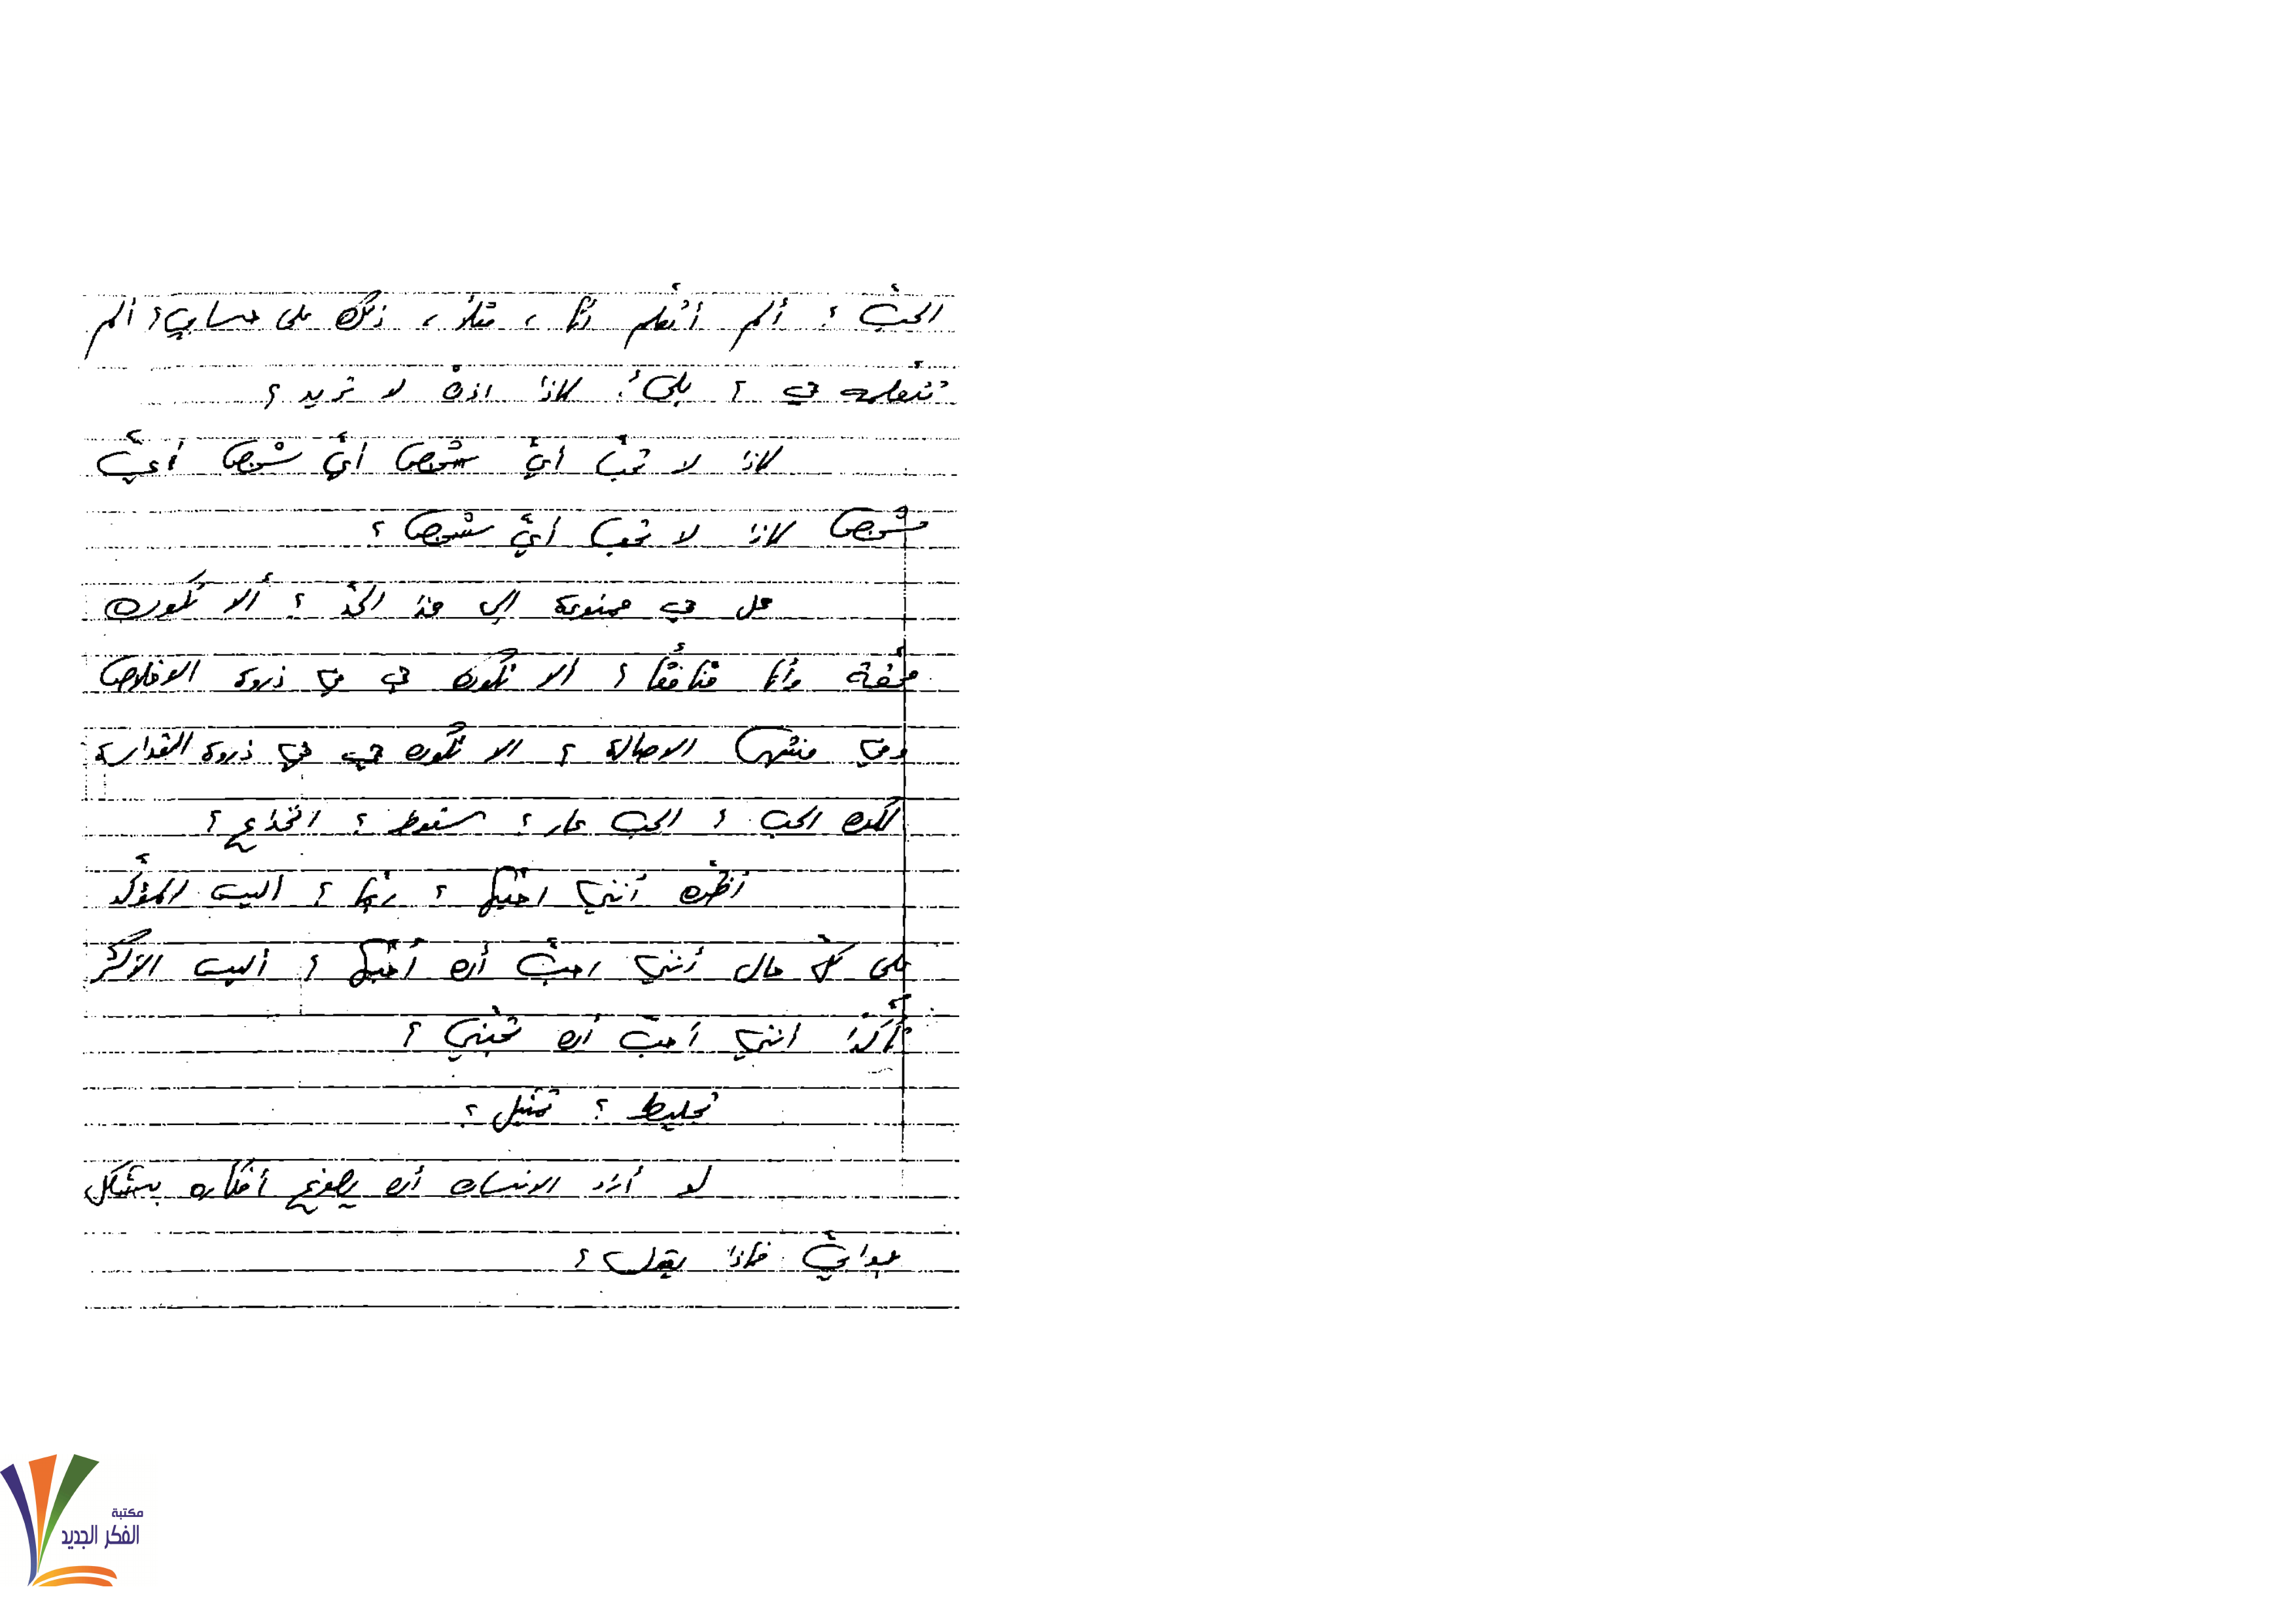 الحبّ ؟ ألم أتعلّم أنا ، مثلاً ، ذلك على حسابي ؟ ألم
تتعلّمه هي ؟ بلى ! لماذا اذن لا تريد ؟
لماذا لا تحبّ أيَّ شخص أيَّ شخص أيَّ
شخص لماذا لا تحب أيَّ شخص ؟
هل هي ممنوعة الى هذا الحدّ ؟ ألا تكون
محقّة وأنا منافقاً ؟ ألا تكون هي في ذروة الاخلاص
وفي منتهى الاصالة ؟ الا تكون هي في ذروة القداسة
لكن الحب ؟ الحب عار ؟ سقوط ؟ انخداع ؟
أظنّ أنني احبّها ؟ ربّما ؟ أليس المؤكّد
على كلّ حال أنني احبّ أن أُحبّها ؟ أليس الأكثر
تأكّداً انني أحبّ أن تحبّني ؟
تخليط ؟ تمثيل ؟
لو أراد الانسان أن يصوغ أفكاره بشكل
عدائيّ فماذا يقول ؟
مكتبة
الفكر الجديد